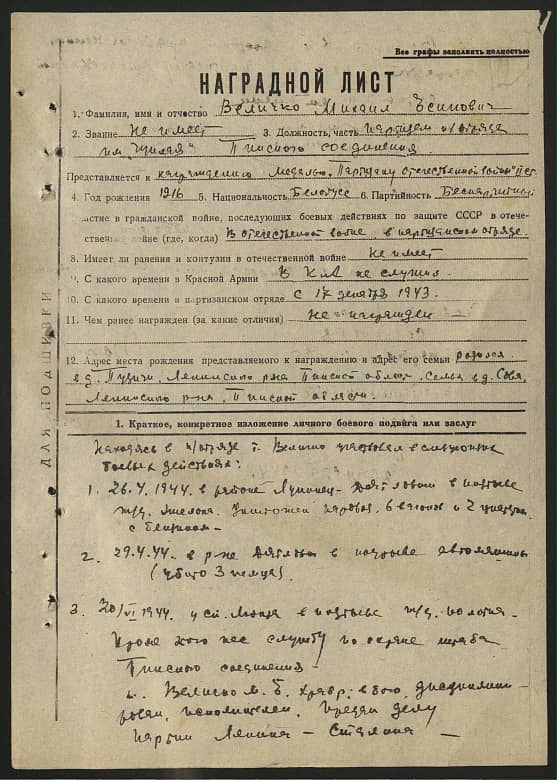 Все графы заполнить полностью
НАГРАДНОЙ ЛИСТ
1. Фамилия, имя и отчество Величко Михаил Есипович
2. Звание не имеет 3. Должность, часть партизан п/отряда
им. Пинского соединения
Представляется к награждению медалью "Партизану отечественной войны" II ст.
4. Год рождения 1916 5. Национальность Белорусс 6. Партийность Беспартийный
астие в гражданской войне, последующих боевых действиях по защите СССР в отече-
ственной войне (где, когда) В отечественной войне, в партизанском отряде
8. Имеет ли ранения и контузии в отечественной войне не имеет
9. С какого времени в Красной Армии В КА не служил.
10. С какого времени в партизанском отряде с 17 декабря 1943.
11. Чем ранее награжден (за какие отличия) не награжден —
12. Адрес места рождения представляемого к награждению и адрес его семьи родился
в д. Пузичи, Ленинского р-на Пинской област. Семья в д.
Ленинского р-на, Пинской области.
ДЛЯ ПОДШИВКИ
1. Краткое, конкретное изложение личного боевого подвига или заслуг
Находясь в п/отряде т. Величко участвовал в следующих
боевых действиях:
1. 26.4.1944. в районе Лунинец - Дятловичи в подрыве
ж/д. эшелона. Уничтожен паровоз, 6 вагонов и 2 цистерны
с бензином —
2. 29.4.44. в р-не Дятловичи в подрыве автомашины
(убито 3 немца).
3. 20/VI 1944. у ст. Люща в подрыве ж/д. полотна.
Кроме того нес службу по охране штаба
Пинского соединения —
т. Величко М. Е. храбр в бою, дисциплини-
рован, исполнителен, предан делу
партии Ленина — Сталина —